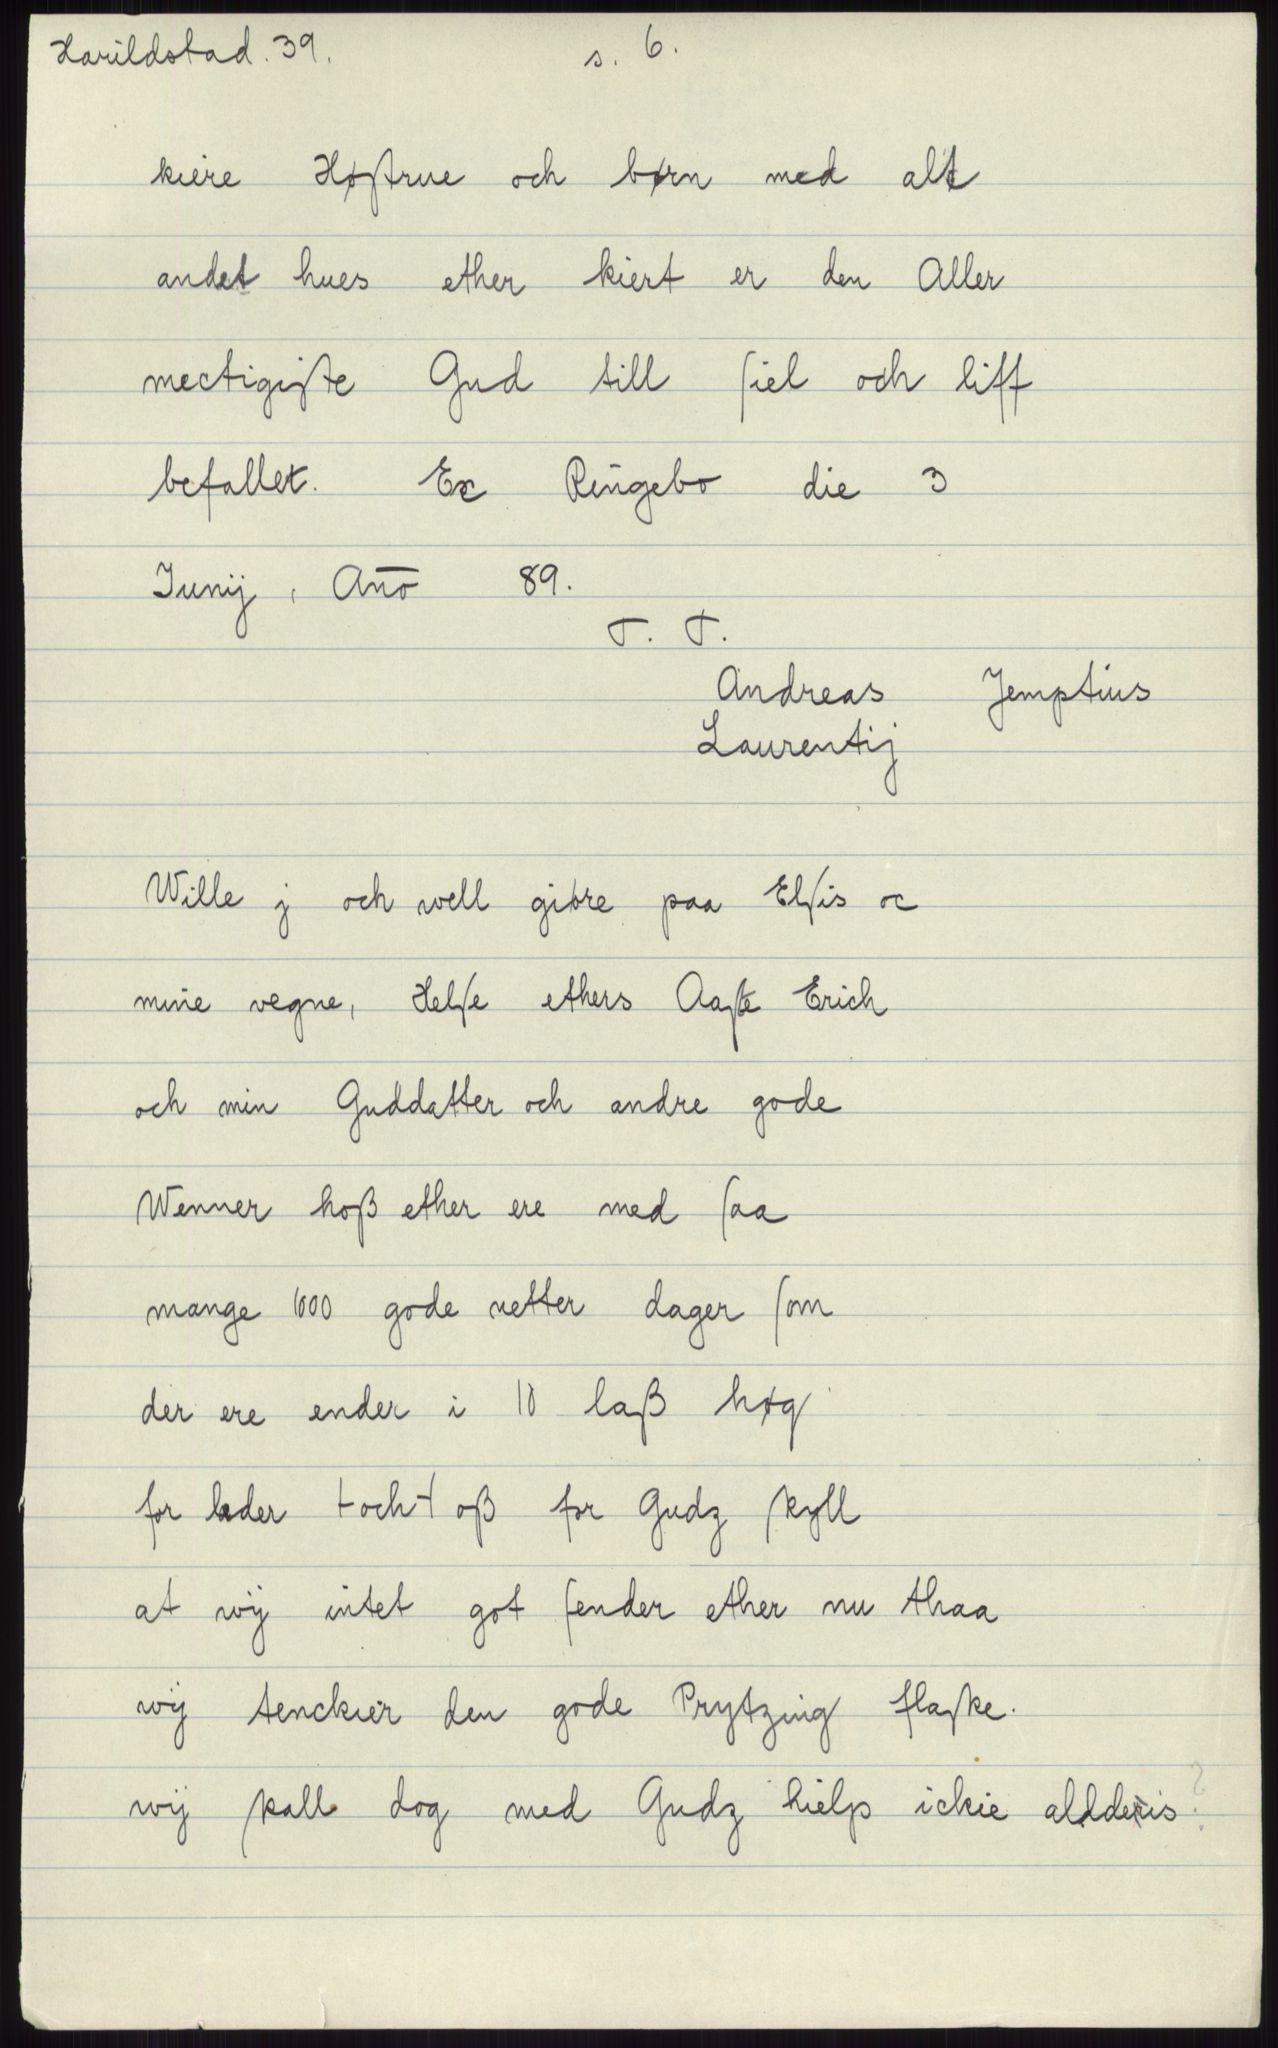 Harildstad. 39. s. 6.
kiere Høſtrue och børn med alt
andet hues ether kiert er den Aller
mectigiſte Gud till ſiel och liff
befallet. Ex Ringebo die 3
Junij, Ano̅ 89.
T. T.
Andreas Jemptius
Laurentij
Wille j och well giøre paa Elſis oc
mine vegne, Helſe ethers Aaſte Erich
och min Guddatter och andre gode
Wenner hoß ether ere med ſaa
mange 1000 gode netter dager ſom
der ere ender i 10 laß høy
for lader + och + oß for Gudz ſkyll
at wij intet got ſender ether nu thaa
wij tenckier den gode Prytzing flaſke.
wij ſkall dog med Gudz hielp ickie allderis ?